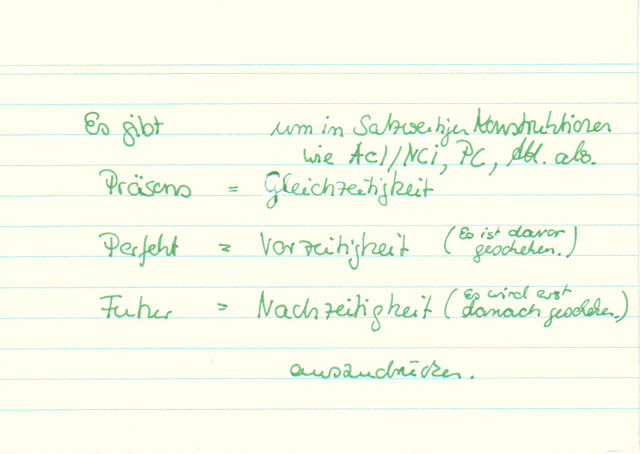 Es gibt um in Satzwertigen Konstruktionen
wie AcI/NCI, PC, Abl. abs.
Präsens = Gleichzeitigkeit
Perfekt = Vorzeitigkeit (Es ist davor
geschehen.)
Futur = Nachzeitigkeit (Es wird erst
danach geschehen.)
auszudrücken.